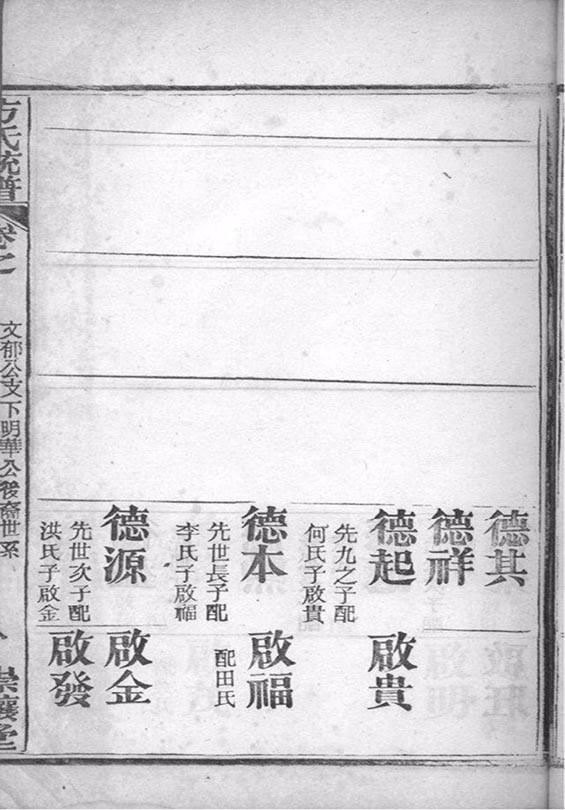 德其
德祥
德起
先九之子配
何氏子啟貴
德本
先世長子配
李氏子啟福
德源
先世次子配
洪氏子啟金
啟貴
啟福
配田氏
啟金
啟發
方氏統譜
卷之
文郁公支下明華公後裔世系
崇讓堂